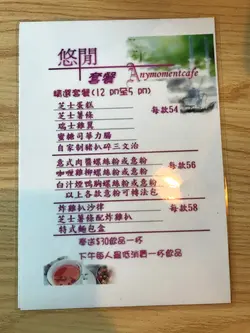 悠閒
套餐 Anymomentcafe
精選套餐(12 pm至5 pm)
芝士蛋糕
芝士薯條 每款54
瑞士雞翼
蜜糖司華力腸
自家制豬扒碎三文治
意式肉醬螺絲粉或意粉 每款56
咖喱雜柳螺絲粉或意粉
白汁煙鴨胸螺絲粉或意粉
以上各款意粉可轉法包
炸雞扒沙律 每款58
芝士薯條配炸雞扒
特式麵包盒
奉送$30飲品一杯
下午每人最低消費一杯飲品